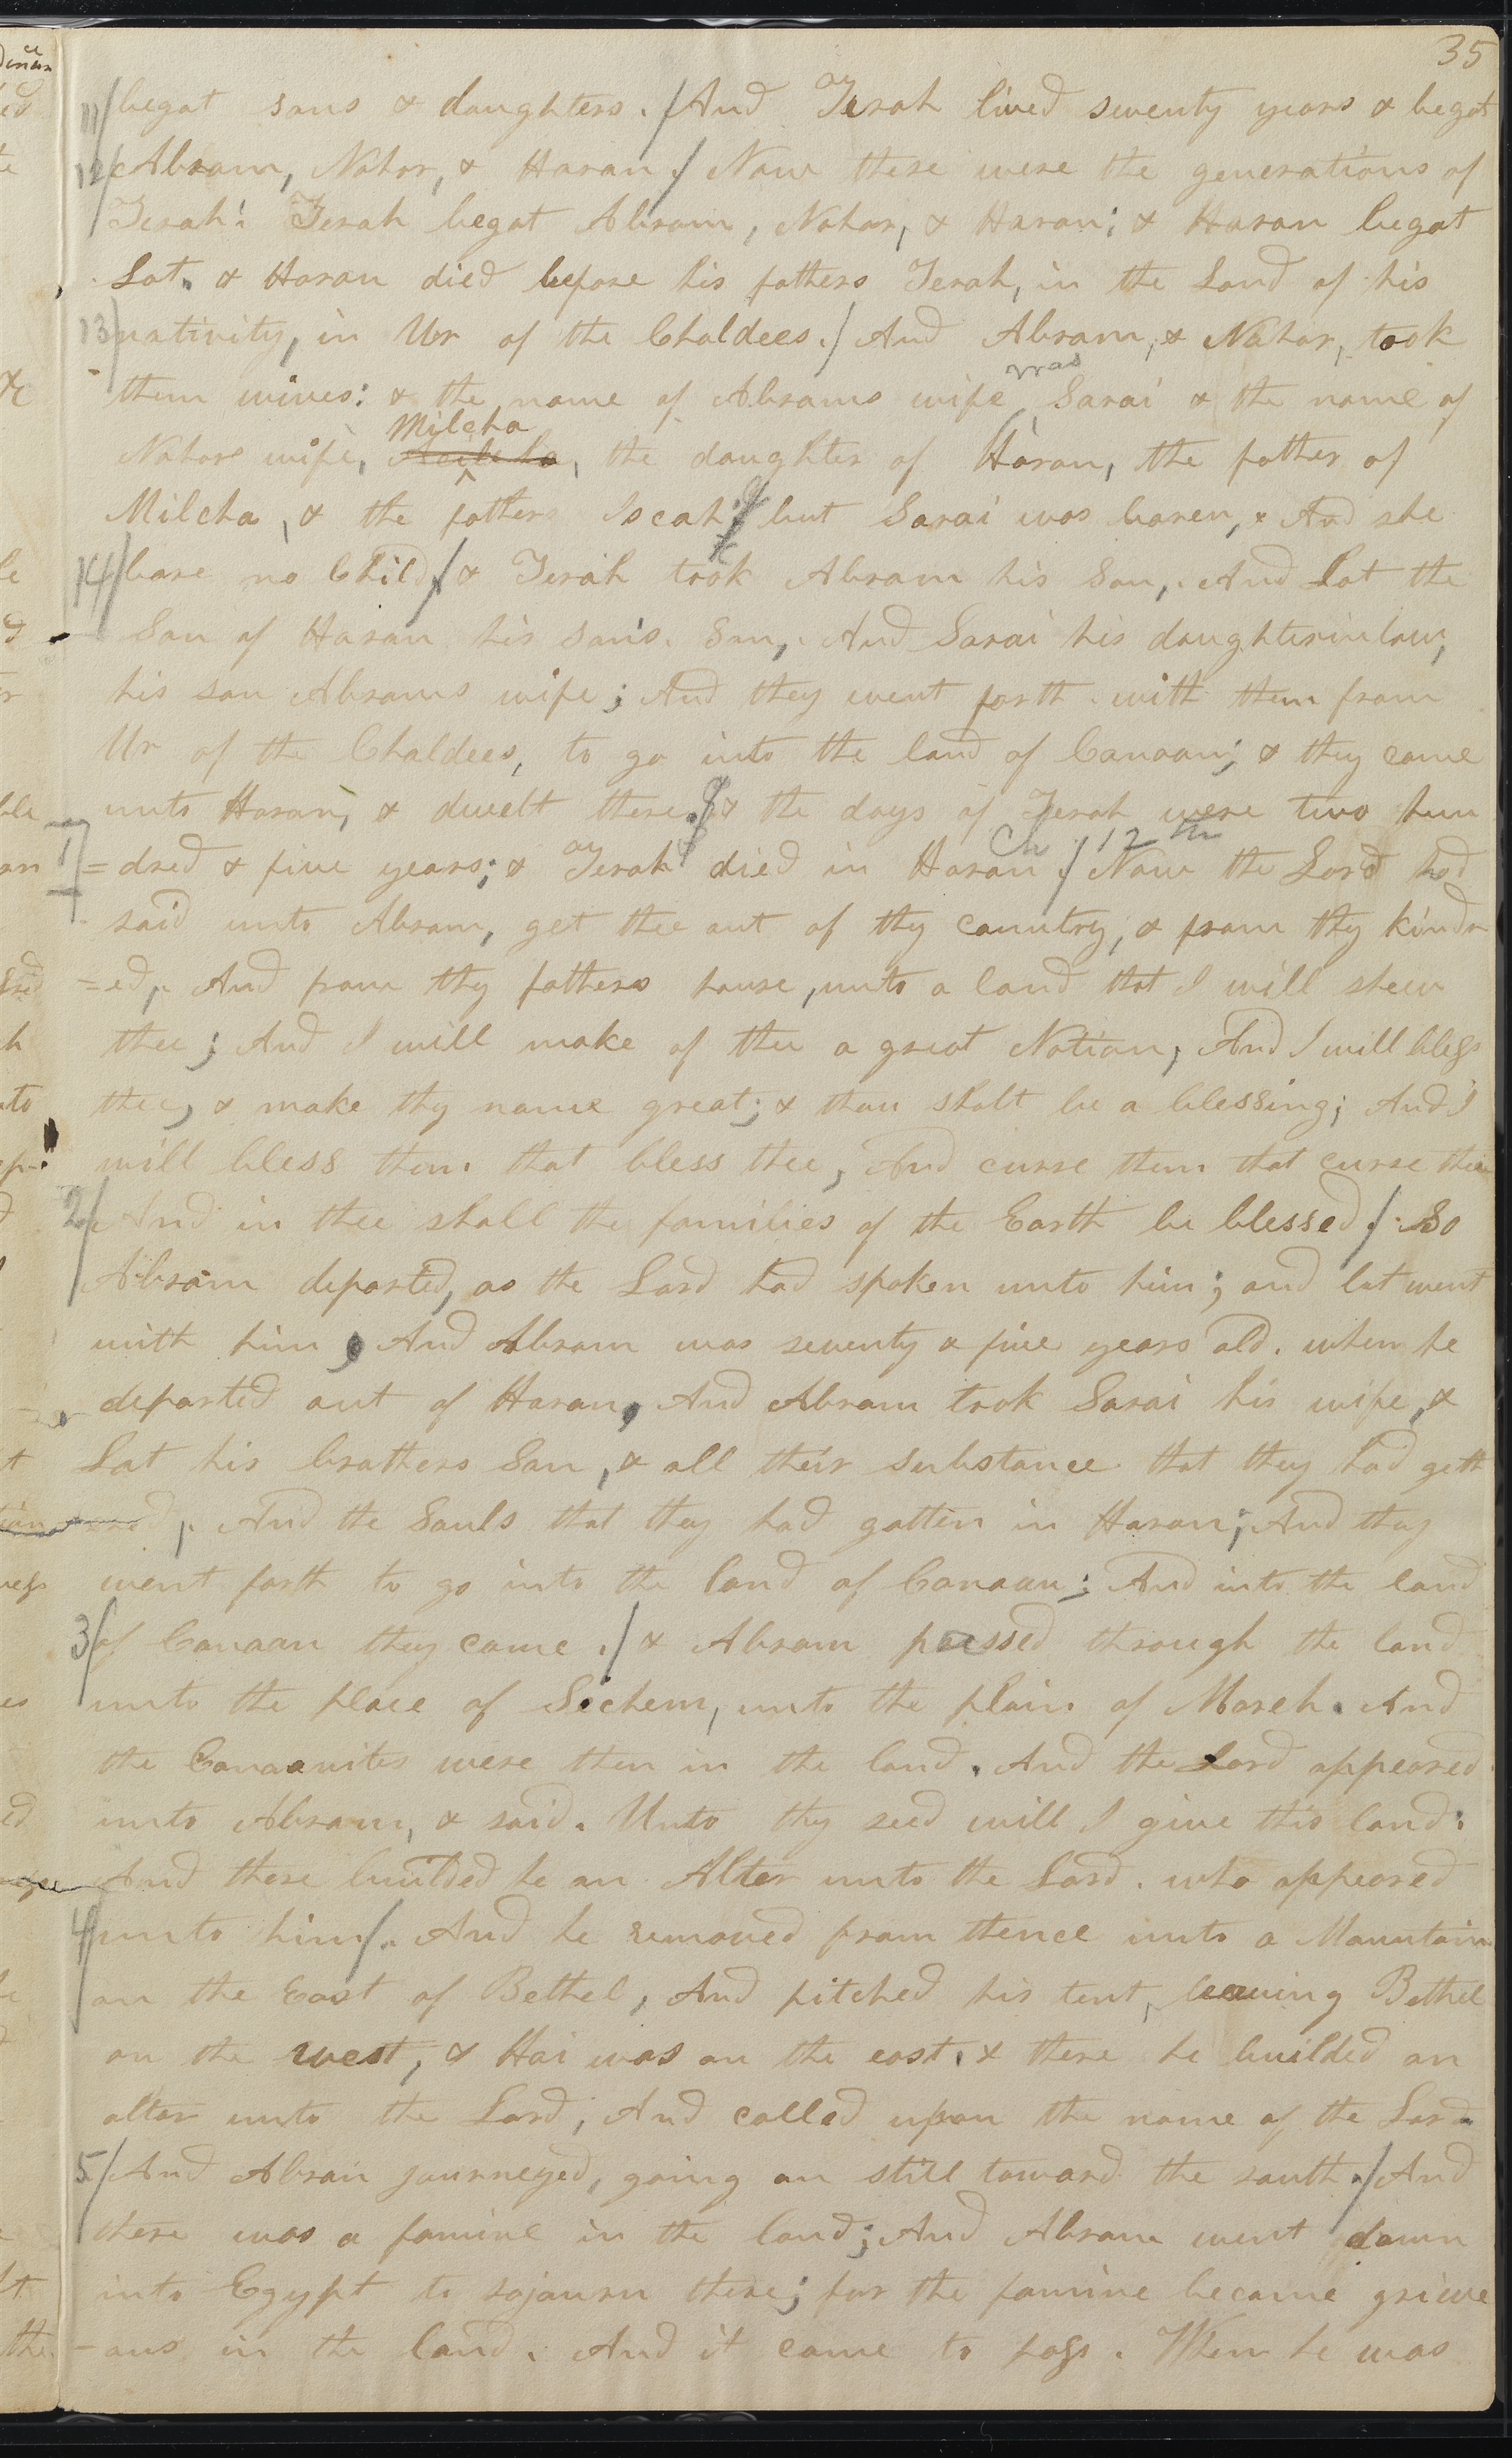 35
11/ begat sons & daughters. / And Terah lived seventy years & begat
12/ Abram, Nahor, & Haran. / Now these were the generations of
Terah: Terah begat Abram, Nahor, & Haran; & Haran begat
Lot. & Haran died before his fathers Terah, in the Land of his
13/ nativity, in Ur of the Chaldees. / And Abram, & Nahor, took
was
them wives: & the name of Abrams wife Sarai & the name of
Milcha
Nahors wife, the daughter of Haran, the father of
Milcha, & the fathers Iscah; but Sarai was baren, & And she
14/ bare no Child / & Terah took Abram his Son, And Lot the
Son of Haran his son's Son, And Sarai his daughterinlaw,
his son Abrams wife; And they went forth with them from
Ur of the Chaldees, to go into the land of Canaan; & they came
unto Haran, & dwelt there. & the days of Terah were two hun
Ch. 12th
1 =dred & five years; & Terah died in Haran. / Now the Lord had
said unto Abram, get thee out of thy country, & from thy kindr
=ed, And from thy fathers house, unto a land that I will shew
thee; And I will make of thee a great Nation, And I will bless
thee, & make thy name great; & thou shalt be a blessing; And I
will bless them that bless thee, And curse them that curse thee
2/ And in thee shall the families of the Earth be blessed / So
Abram departed, as the Lord had spoken unto him; and lot went
with him, And Abram was seventy & five years old. when he
departed out of Haran, And Abram took Sarai his wife, &
Lot his brothers Son, & all their substance that they had gath
=ered, And the Souls that they had gotten in Haran; And they
went forth to go into the land of Canaan; And into the land
3/ of Canaan they came. / & Abram passed through the land
unto the place of Sichem, unto the plain of Moreh. And
the Canaanites were then in the land. And the Lord appeared
unto Abram, & said. Unto thy seed will I give this land:
And there builded he an Alter unto the Lord. who appeared
4/ unto him /. And he removed from thence unto a Mountain
on the East of Bethel, And pitched his tent, leaving Bethel
on the west, & Hai was on the east. & there he builded an
altar unto the Lord, And called upon the name of the Lord
5/ And Abram journeyed, going on still toward the south. / And
there was a famine in the land; And Abram went down
into Egypt to sojourn there; for the famine became grieve
-ous in the land. And it came to pass. When he was